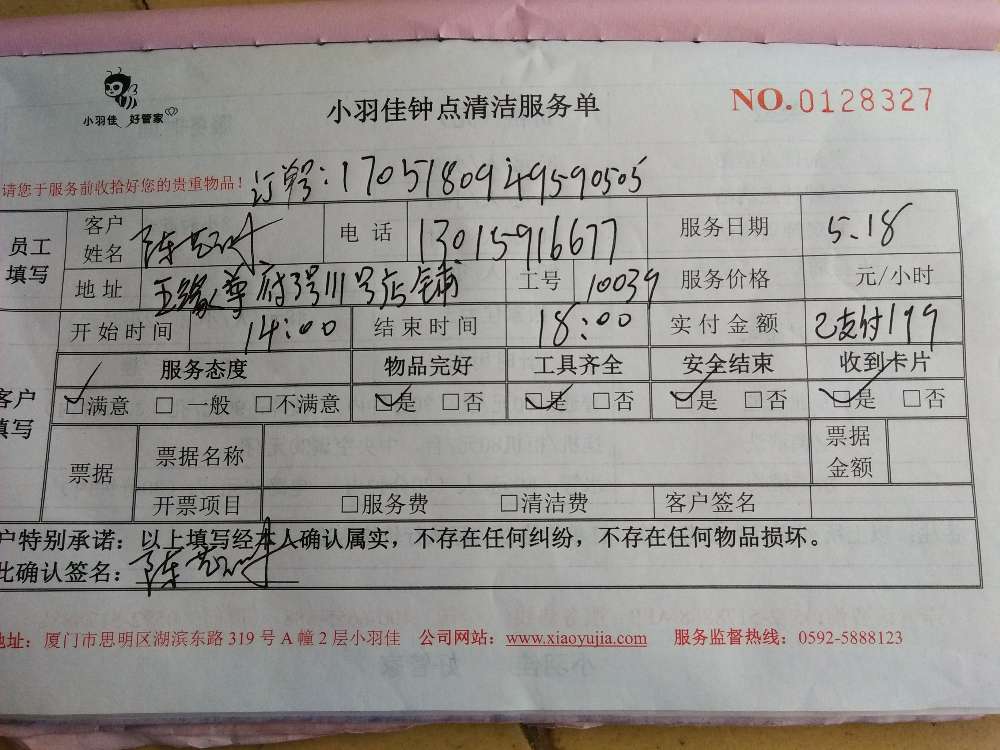 小羽佳 好管家
小羽佳钟点清洁服务单
NO.0128327
请您于服务前收拾好您的贵重物品! 订单号:1705180949590505
员工填写 客户姓名 陈 电话 13015916677 服务日期 5.18
地址 府3号111号店铺 工号 10039 服务价格 元/小时
客户填写 开始时间 14:00 结束时间 18:00 实付金额 已支付199
服务态度 物品完好 工具齐全 安全结束 收到卡片
☑满意 □一般 □不满意 ☑是 □否 ☑是 □否 ☑是 □否 ☑是 □否
票据 票据名称 票据金额
开票项目 □服务费 □清洁费 客户签名
户特别承诺:以上填写经本人确认属实,不存在任何纠纷,不存在任何物品损坏。
此确认签名:陈
地址:厦门市思明区湖滨东路319号A幢2层小羽佳 公司网站:www.xiaoyujia.com 服务监督热线:0592-5888123